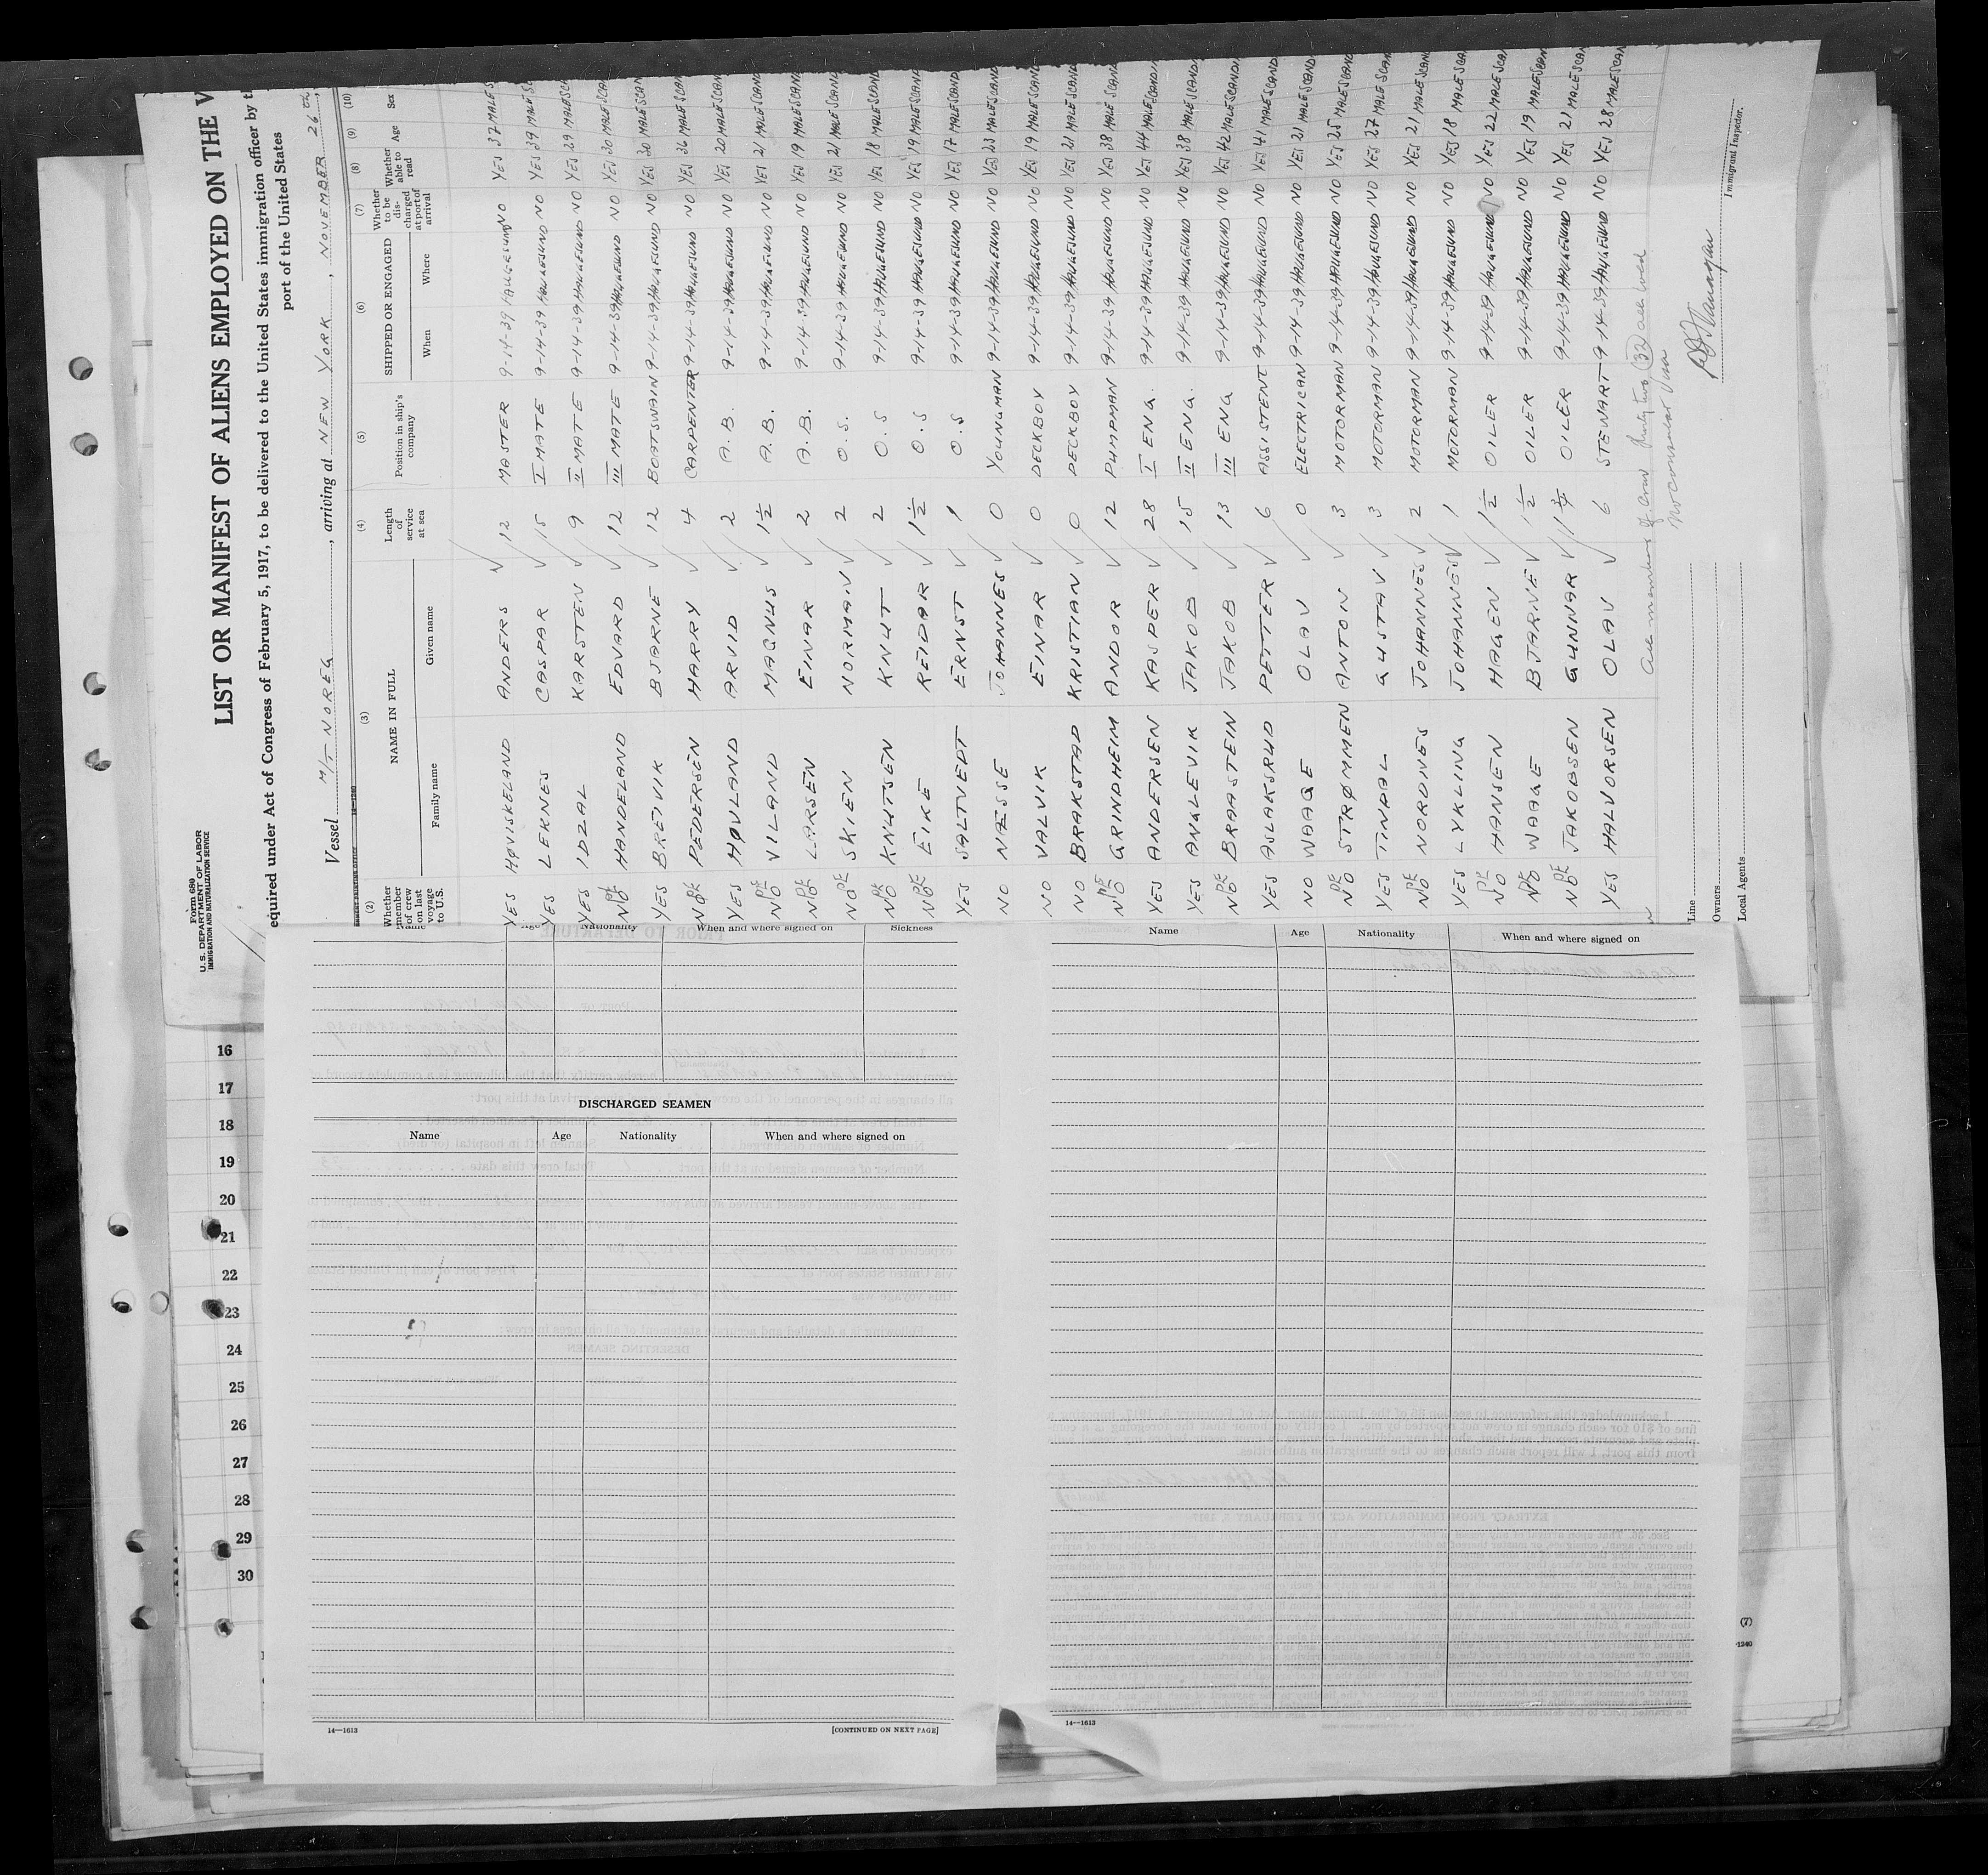 Form 680
U. S. DEPARTMENT OF LABOR
IMMIGRATION AND NATURALIZATION SERVICE
LIST OR MANIFEST OF ALIENS EMPLOYED ON THE V
equired under Act of Congress of February 5, 1917, to be delivered to the United States immigration officer by t
port of the United States
Vessel M/T NOREG, arriving at NEW YORK, NOVEMBER 26th,
(2) (3) (4) (5) (6) (7) (8) (9) (10)
Whether member of crew on last voyage to U.S. NAME IN FULL Family name Given name Length of service at sea Position in ship's company SHIPPED OR ENGAGED When Where Whether to be discharged at port of arrival Whether able to read Age Sex
YES HØVISKELAND ANDERS 12 MASTER 9-14-39 HAUGESUND NO YES 37 MALE S
YES LEKNES CASPAR 15 I MATE 9-14-39 HAUGESUND NO YES 39 MALE SC
YES IDZAL KARSTEN 9 II MATE 9-14-39 HAUGESUND NO YES 29 MALE SCA
NO HANDELAND EDVARD 12 III MATE 9-14-39 HAUGESUND NO YES 30 MALE SCAN
YES BREIVIK BJARNE 12 BOATSWAIN 9-14-39 HAUGESUND NO YES 30 MALE SCAN
NO PEDERSEN HARRY 4 CARPENTER 9-14-39 HAUGESUND NO YES 36 MALE SCAN
YES HØVLAND ARVID 2 A.B. 9-14-39 HAUGESUND NO YES 20 MALE SCAN
NO VILAND MAGNUS 1½ A.B. 9-14-39 HAUGESUND NO YES 21 MALE SCAND
NO LARSEN EINAR 2 A.B. 9-14-39 HAUGESUND NO YES 19 MALE SCAND
NO SKIEN NORMAN 2 O.S. 9-14-39 HAUGESUND NO YES 21 MALE SCAND
NO KNUTSEN KNUT 2 O.S 9-14-39 HAUGESUND NO YES 18 MALE SCAND
NO EIKE REIDAR 1½ O.S 9-14-39 HAUGESUND NO YES 19 MALE SCAND
YES SALTVEDT ERNST 1 O.S 9-14-39 HAUGESUND NO YES 17 MALE SCAND
NO NÆSSE JOHANNES 0 YOUNGMAN 9-14-39 HAUGESUND NO YES 23 MALE SCAND
NO VALVIK EINAR 0 DECKBOY 9-14-39 HAUGESUND NO YES 19 MALE SCAND
NO BRAKSTAD KRISTIAN 0 DECKBOY 9-14-39 HAUGESUND NO YES 21 MALE SCAND
NO GRINDHEIM ANDOR 12 PUMPMAN 9-14-39 HAUGESUND NO YES 38 MALE SCAN
YES ANDERSEN KASPER 28 I ENG. 9-14-39 HAUGESUND NO YES 44 MALE SCAND
YES ANGLEVIK JAKOB 15 II ENG. 9-14-39 HAUGESUND NO YES 38 MALE SCAND
NO BRAASTEIN JAKOB 13 III ENG 9-14-39 HAUGESUND NO YES 42 MALE SCAND
YES ASLAKSRUD PETTER 6 ASSISTENT 9-14-39 HAUGESUND NO YES 41 MALE SCAND
NO WAAGE OLAV 0 ELECTRICAN 9-14-39 HAUGESUND NO YES 21 MALE SCAND
NO STRØMMEN ANTON 3 MOTORMAN 9-14-39 HAUGESUND NO YES 25 MALE SCAND
YES TINDAL GUSTAV 3 MOTORMAN 9-14-39 HAUGESUND NO YES 27 MALE SCAN
NO NORDNES JOHANNES 2 MOTORMAN 9-14-39 HAUGESUND NO YES 21 MALE SCAN
YES LYKLING JOHANNES 1 MOTORMAN 9-14-39 HAUGESUND NO YES 18 MALE SCAN
NO HANSEN HAGEN 1½ OILER 9-14-39 HAUGESUND NO YES 22 MALE SCAN
NO WAAGE BJARNE 1½ OILER 9-14-39 HAUGESUND NO YES 19 MALE SCAN
NO JAKOBSEN GUNNAR OILER 9-14-39 HAUGESUND NO YES 21 MALE SCAN
YES HALVORSEN OLAV 6 STEWART 9-14-39 HAUGESUND NO YES 28 MALE SCAN
All members of crew thirty two (32)
No Consular Visa
Line
Owners
Local Agents
Immigrant Inspector.
Age Nationality When and where signed on Sickness
DISCHARGED SEAMEN
Name Age Nationality When and where signed on
14—1613 [CONTINUED ON NEXT PAGE]
Name Age Nationality When and where signed on
14—1613
16
17
18
19
20
21
22
23
24
25
26
27
28
29
30
(7)
1240